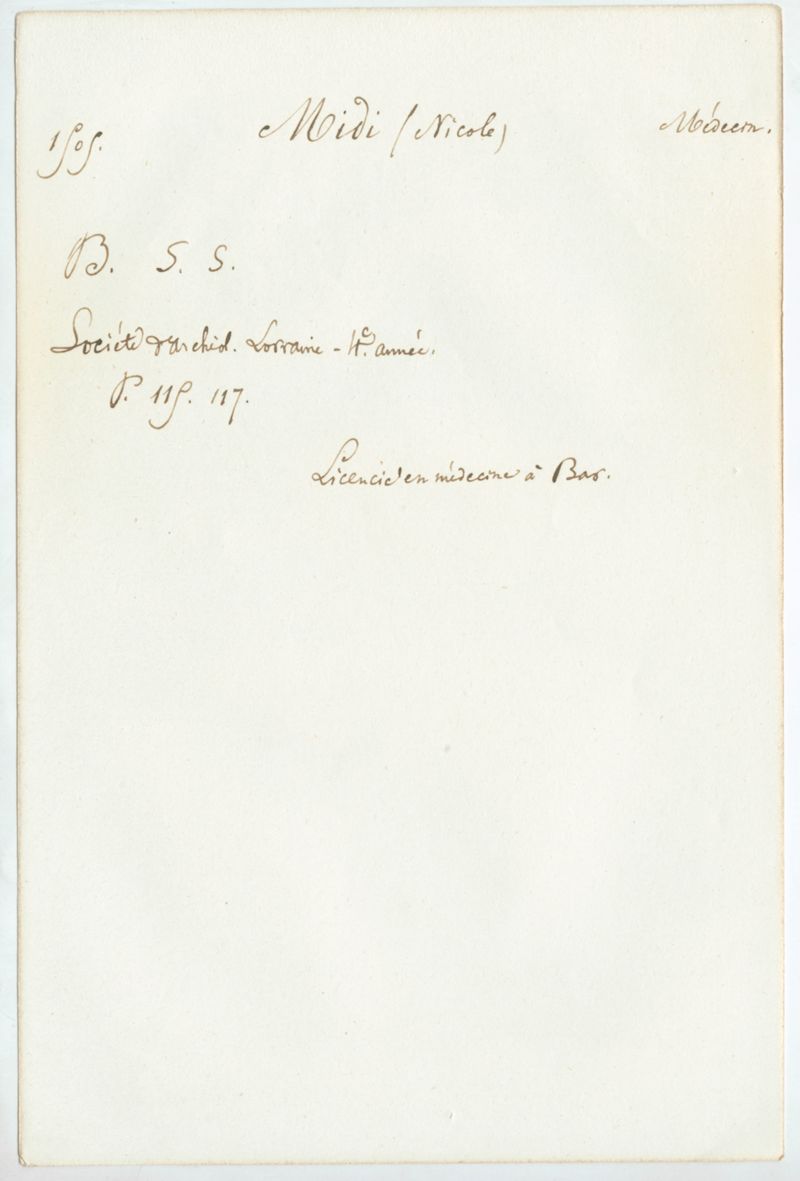 1505. Midi (Nicole) Médecin.
B. S. S.
Société d'archéol. Lorraine - 4e. année.
P. 115. 117.
Licencié en médecine à Bar.